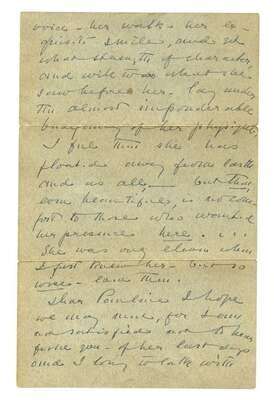 voice - her walk - her ex-
quisite smile, and yet
what strength of character
and will
saw before her - lay under
the almost imponderable
buoyancy of her physique
I feel that she has
floated away from earth
and us all, - but that,
beautiful, is no com-
fort to those who wanted
her presence here. . . .
She was only eleven when
I first knew her - but so
even then.
Dear Pauline I hope
we may meet, for I am
not satisfied not to hear
from you - of her last days
and I long to talk with